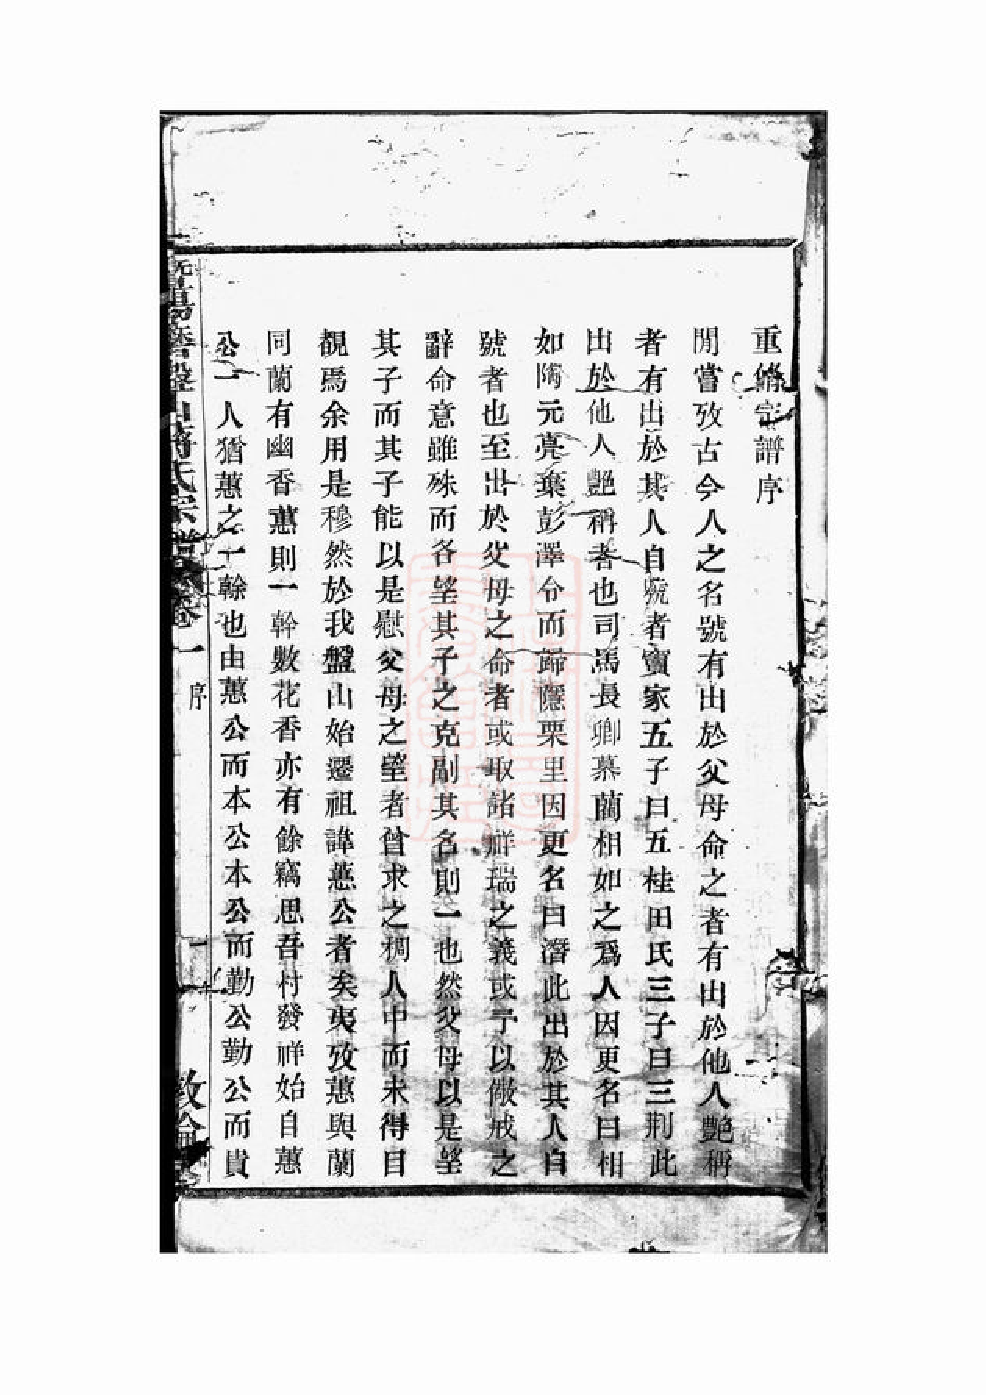 重修宗譜序
閒嘗攷古今人之名號有出於父母命之者有出於他人艷稱
者有出於其人自號者竇家五子曰五桂田氏三子曰三荆此
出於他人艷稱者也司馬長卿慕藺相如之爲人因更名曰相
如陶元亮棄彭澤令而歸隱栗里因更名曰潛此出於其人自
號者也至出於父母之命者或取諸祥瑞之義或予以儆戒之
辭命意雖殊而各望其子之克副其名則一也然父母以是望
其子而其子能以是慰父母之望者曾求之稠人中而未得目
覩焉余用是穆然於我盤山始遷祖諱蕙公者矣夷攷蕙與蘭
同蘭有幽香蕙則一幹數花香亦有餘竊思吾村發祥始自蕙
公一人猶蕙之一榦也由蕙公而本公本公而勤公勤公而貴
暨陽 盤山蔣氏宗譜 卷一 序 一 敦倫